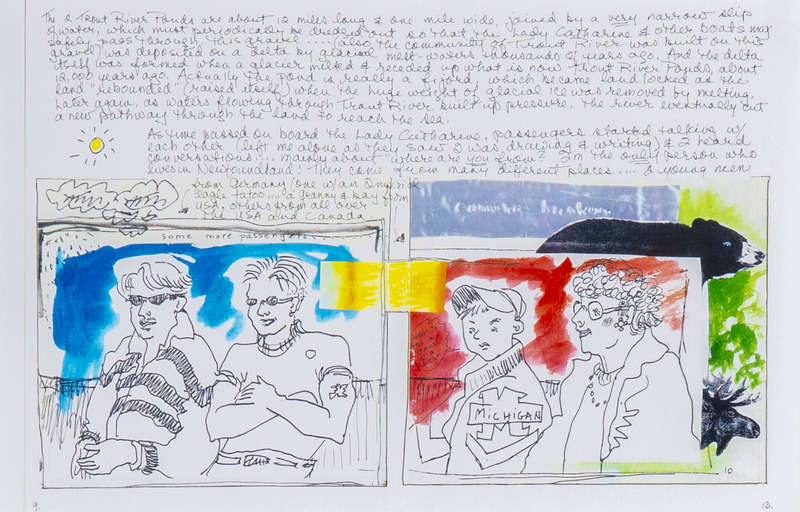 The 2 Trout River Ponds are about 12 miles long & one mile wide, joined by a very narrow slip
of water, which must periodically be dredged out so that the Lady Catharine & other boats may
safely pass through. This gravel .... (also the community of Trout River was built on this
gravel) was deposited on a delta by glacial melt-waters thousands of years ago. And the delta
itself was formed when a glacier melted & receded up what is now Trout River Ponds, about
12,000 years ago. Actually the pond is really a fijord, which became landlocked as the
land "rebounded" (raised itself) when the huge weight of glacial ice was removed by melting.
Later again, as waters flowing through Trout River built up pressure, the river eventually cut
a new pathway through the land to reach the sea.
As time passed on board the Lady Catharine, passengers started talking w/
each other (left me alone as they saw I was drawing & writing) & I heard
conversations .... mainly about "where are you from?" I'm the only person who
lives in Newfoundland! They come from many different places .... a young man
from Germany (one w/an
eagle tatoo .... a granny & boy from
USA, others from all over
the USA and Canada
some more passengers
MICHIGAN
10.
9.
13.